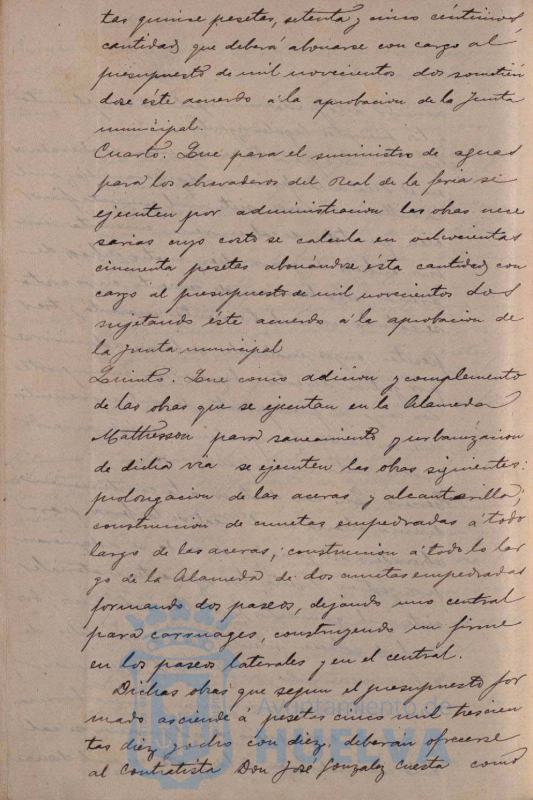 tas quince pesetas, setenta y cinco céntimos
cantidad que deberá abonarse con cargo al
presupuesto de mil novecientos dos sometién
dose este acuerdo á la aprobacion de la Junta
municipal.
Cuarto. Que para el suministro de aguas
para los abrevaderos del Real de la feria se
ejecuten por administracion las obras nece
sarias cuyo costo se calcula en ochocientas
cincuenta pesetas abonándose ésta cantidad con
cargo al presupuesto de mil novecientos dos
sujetando éste acuerdo á la aprobacion de
la Junta municipal
Quinto. Que como adicion y complemento
de las obras que se ejecutan en la Alameda
Mathesson para saneamiento y urbanizacion
de dicha via se ejecuten las obras siguientes:
prolongacion de las aceras y alcantarilla;
construccion de cunetas empedradas á todo
largo de las aceras; construccion á todo lo lar
go de la Alameda de dos cunetas empedradas
formando dos paseos, dejando uno central
para carruages, construyendo un firme
en los paseos laterales y en el central.
Dichas obras que segun el presupuesto for
mado asciende á pesetas cinco mil trescien
tas diez y ocho con diez, deberán ofrecerse
al contratista Don José Gonzalez Cuesta como
Ayuntamiento de
HUELVA